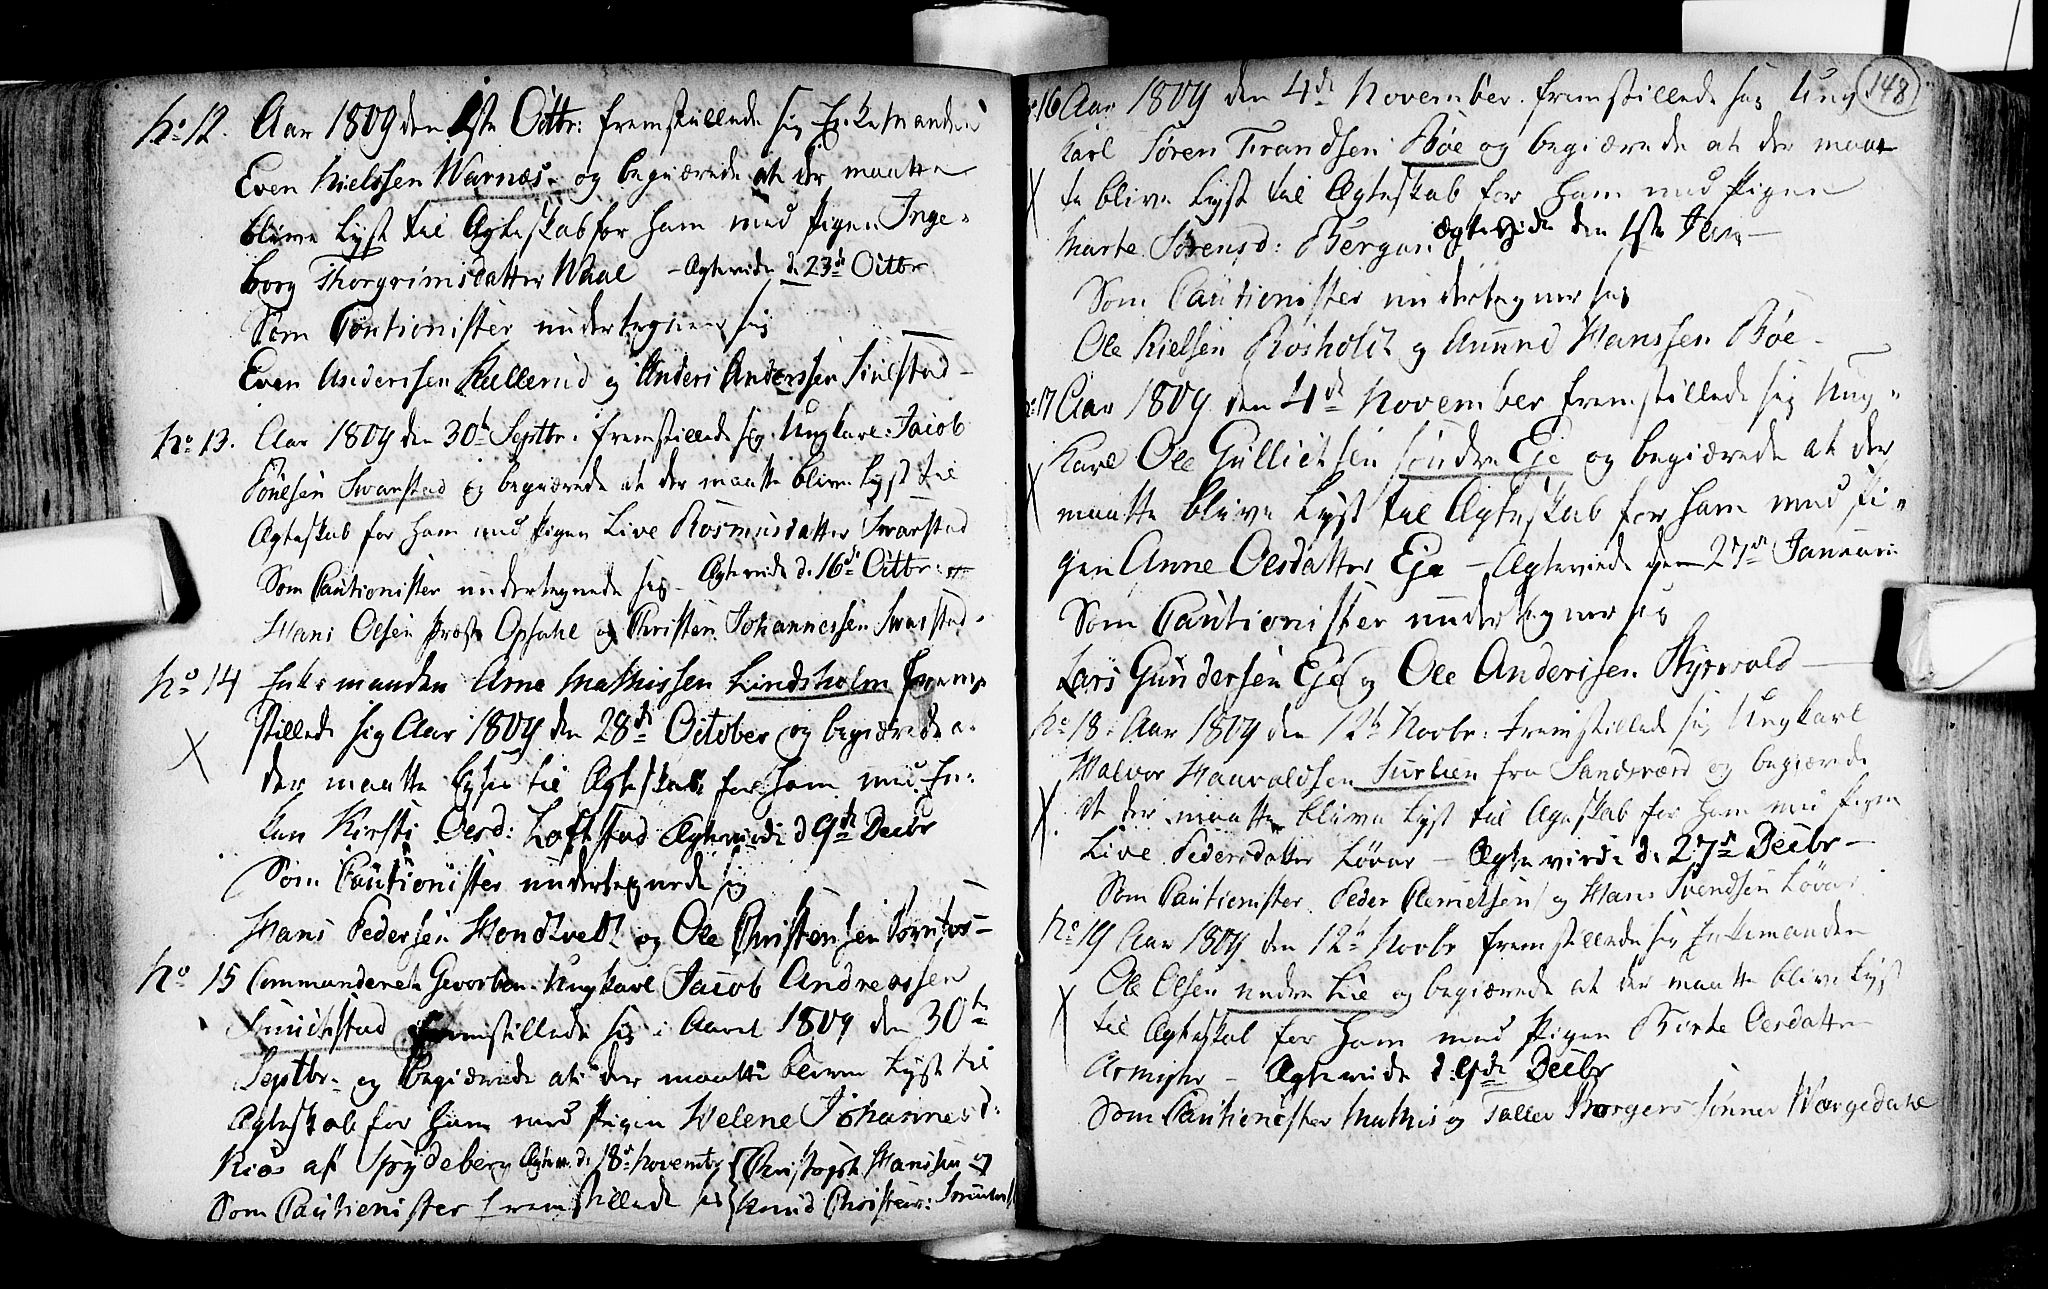 No 12. Aar 1809 den 1ste Octbr: fremstillede sig Enkemanden
Even Nielssen Warnæs og begiærede at der maatte
blive lyst til Ægteskab for ham med Pigen Inge-
borg Thorgrimsdatter Waal - Ægteviede d. 23de Octbr
Som Cautionister undertegner sig
Even Anderssen Kallerud og Anders Anderssen
No 13. Aar 1809 den 30te Septbr. fremstillede sig Ungkarl: Jacob
Poulsen Swarstad og begiærede at der maatte blive lyst til
Ægteskab for ham med Pigen Live Rosmusdatter Swarstad
Som Cautionister undertegnede sig - Ægteviede d. 16de Octbr:
Hans Olsen Præste Opsahl og Christen Johannessen Swarstad.
No 14 Enkemanden Arne Mathissen Lindsholm frem-
stillede sig Aar 1809 den 28de October og begiærede a.
der maatte lyses til Ægteskab for ham med En-
kan Kirsti Olsd: Loftstad Ægteviede d 9de Decbr
Som Cautionister undertegnede sig
Hans Pedersen Hondtvedt og Ole Christensen
No 15 Commanderete Gevorben Ungkarl Jacob Andreassen
fremstillede sig i Aaret 1809 den 30te
Septbr. og begiærede at der maatte blive lyst til
Ægteskab for ham med Pigen Helene Johannesd:
Riös af Spydeberg Ægtev. d. 18de Novembr { Christoph. Hanssen og
Som Cautionister fremstillede sig { Knud Christens:
148
No 16 Aar 1809 den 4de November fremstillede sig Ung
karl Søren Frandsen Bøe og begiærede at der maat
te blive lyst til Ægteskab for ham med Pigen
Marte Sørensd: Bergan Ægteviede den 1ste Jan -
Som Cautionister undertegner sig
Ole Nielsen Rosholdt og Amund Hanssen Bøe -
No 17 Aar 1809 den 4de November fremstillede sig Ung-
karl Ole Gullichsen søndre Eje og begiærede at der
maatte blive lyst til Ægteskab for ham med Pi-
gen Anne Olsdatter Eje - Ægteviede den 27de Januari
Som Cautionister undertegner sig
Lars Gundersen Eje og Ole Anderssen Styrvold -
No 18. Aar 1809 den 12te Novbr: fremstillede sig Ungkarl
Halvor Haavoldsen fra Sandsværd og begiærede
at der maatte blive lyst til Ægteskab for ham med Pigen
Live Pedersdatter Løvar - Ægteviede d. 27de Decbr -
Som Cautionister Peder Clemetsen og Hans Svendsen Løvar
No 19 Aar 1809 den 12te Novbr fremstillede sig Enkemanden
Ole Olsen nedre Lie og begiærede at der maatte blive lyst
til Ægteskab for ham med Pigen Birte Olsdatter
- Ægteviede d. 9de Decbr
Som Cautionister Mathis og Tallev Borgers sønner Wærgedahl